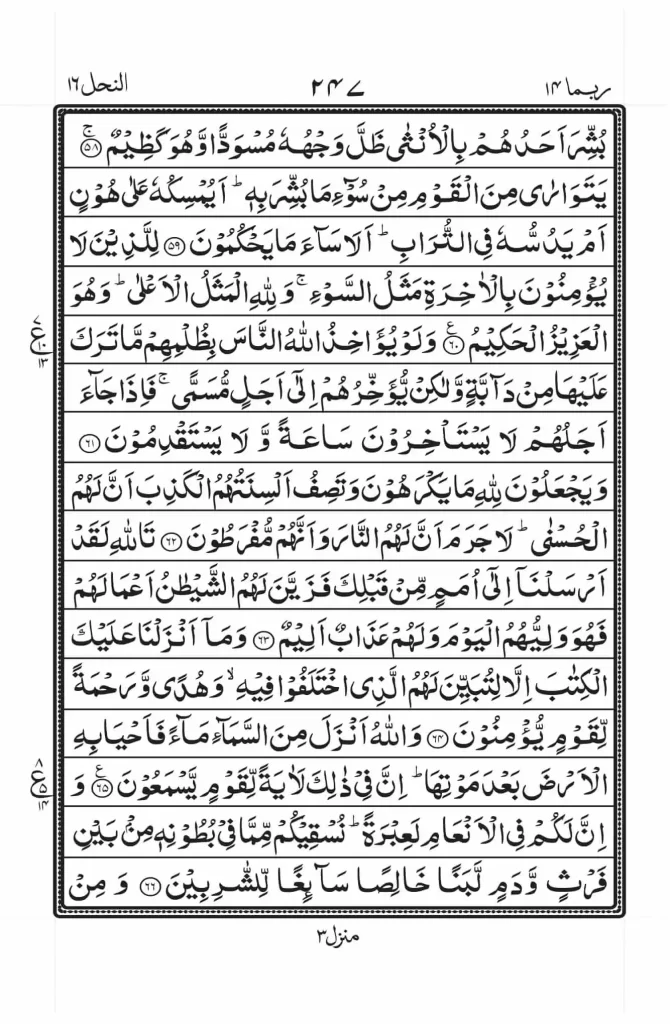 ربما ١٤
٢٤٧
النحل ١٦
بُشِّرَ اَحَدُهُمْ بِالْاُنْثٰى ظَلَّ وَجْهُهٗ مُسْوَدًّا وَّهُوَ كَظِيْمٌ ۚ‏ ﴿۵۸﴾
يَتَوَارٰى مِنَ الْقَوْمِ مِنْ سُوْٓءِ مَا بُشِّرَ بِهٖ ؕ اَيُمْسِكُهٗ عَلٰى هُوْنٍ
اَمْ يَدُسُّهٗ فِى التُّرَابِ ؕ اَلَا سَآءَ مَا يَحْكُمُوْنَ ﴿۵۹﴾ لِلَّذِيْنَ لَا
يُؤْمِنُوْنَ بِالْاٰخِرَةِ مَثَلُ السَّوْءِ ۚ وَلِلّٰهِ الْمَثَلُ الْاَعْلٰى ؕ وَهُوَ
الْعَزِيْزُ الْحَكِيْمُ ﴿۶۰﴾ ع وَلَوْ يُؤَاخِذُ اللّٰهُ النَّاسَ بِظُلْمِهِمْ مَّا تَرَكَ
٧ ع ١٠ ١٣
عَلَيْهَا مِنْ دَآبَّةٍ وَّلٰكِنْ يُّؤَخِّرُهُمْ اِلٰٓى اَجَلٍ مُّسَمًّى ۚ فَاِذَا جَآءَ
اَجَلُهُمْ لَا يَسْتَاْخِرُوْنَ سَاعَةً وَّ لَا يَسْتَقْدِمُوْنَ ﴿۶۱﴾
وَيَجْعَلُوْنَ لِلّٰهِ مَا يَكْرَهُوْنَ وَتَصِفُ اَلْسِنَتُهُمُ الْكَذِبَ اَنَّ لَهُمُ
الْحُسْنٰى ؕ لَا جَرَمَ اَنَّ لَهُمُ النَّارَ وَاَنَّهُمْ مُّفْرَطُوْنَ ﴿۶۲﴾ تَاللّٰهِ لَقَدْ
اَرْسَلْنَاۤ اِلٰٓى اُمَمٍ مِّنْ قَبْلِكَ فَزَيَّنَ لَهُمُ الشَّيْطٰنُ اَعْمَالَهُمْ
فَهُوَ وَلِيُّهُمُ الْيَوْمَ وَلَهُمْ عَذَابٌ اَلِيْمٌ ﴿۶۳﴾ وَمَاۤ اَنْزَلْنَا عَلَيْكَ
الْكِتٰبَ اِلَّا لِتُبَيِّنَ لَهُمُ الَّذِى اخْتَلَفُوْا فِيْهِ ۙ وَهُدًى وَّرَحْمَةً
لِّقَوْمٍ يُّؤْمِنُوْنَ ﴿۶۴﴾ وَاللّٰهُ اَنْزَلَ مِنَ السَّمَآءِ مَآءً فَاَحْيَا بِهِ
الْاَرْضَ بَعْدَ مَوْتِهَا ؕ اِنَّ فِىْ ذٰلِكَ لَاٰيَةً لِّقَوْمٍ يَّسْمَعُوْنَ ﴿۶۵﴾ ع وَ
٨ ع ٥ ١٤
اِنَّ لَكُمْ فِى الْاَنْعَامِ لَعِبْرَةً ؕ نُسْقِيْكُمْ مِّمَّا فِىْ بُطُوْنِهٖ مِنْۢ بَيْنِ
فَرْثٍ وَّدَمٍ لَّبَنًا خَالِصًا سَآئِغًا لِّلشّٰرِبِيْنَ ﴿۶۶﴾ وَ مِنْ
منزل ٣